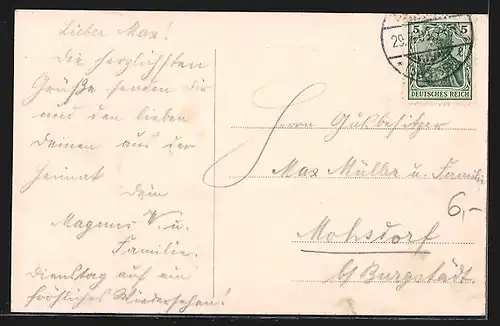 Lieber Max!
Die herzlichsten
Grüße senden dir
und den lieben
Deinen aus der
Heimat
Dein
Magnus V. u.
Familie.
Dienstag auf ein
fröhliches Wiedersehen!
5 5
29.
DEUTSCHES REICH
Herrn Gutsbesitzer
Max Müller u. Familie
Mohsdorf
b/ Burgstädt.
6,-